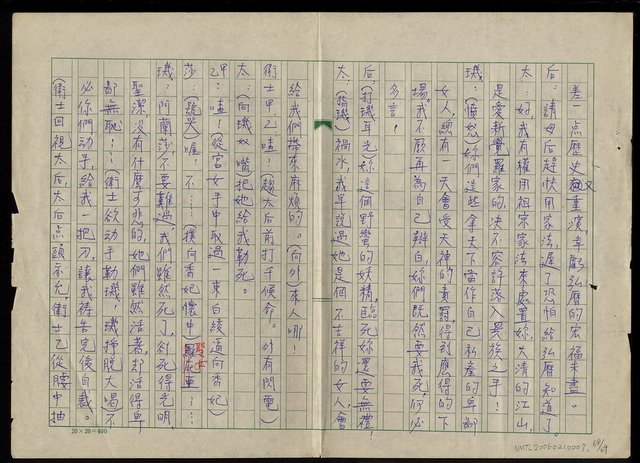 差一点歷史又重演幸虧弘曆的宏福未盡。
后：請母后趕快用家法，遲了恐怕給弘曆知道了。
太：好我有權用祖宗家法來處置妳，大清的江山，
是愛新覺羅家的，決不容許落入異族之手！
璣：（憤怒）妳們這些拿天下當作自己私產的卑鄙
女人，總有一天會受天神的責罰，得到應得的下
場。我不願再為自己辯白，妳們既然要我死，何必
多言！
后：（打璣耳光）妳這個野蠻的妖精，臨死妳還要無禮，
太：（指璣）禍水，我早說過她是個不吉祥的女人，會
給我們帶來麻煩的。（向外）來人哪！
衛士甲、乙：喳！（趨太后前打千候命。外有閃電）
太：（向璣奴嘴把她給我勒死。
甲：喳！（從宮女手中取過一束白綾逼向香妃）
莎：（號哭）喔！不……（撲向香妃懷中）聖女……
璣：阿蘭莎，不要難過，我們雖然死了，卻死得光明，
聖潔沒有什麼可悲的，她們雖然活著，却活得卑
鄙無恥！……（衛士欲动手勒璣，璣掙脫大喝）不
必你們动手，給我一把刀，讓我禱告完後自裁。
（衛士回視太后，太后点頭示允，衛士乙從腰中抽
20×20=400
NMTL20060210007
68/69